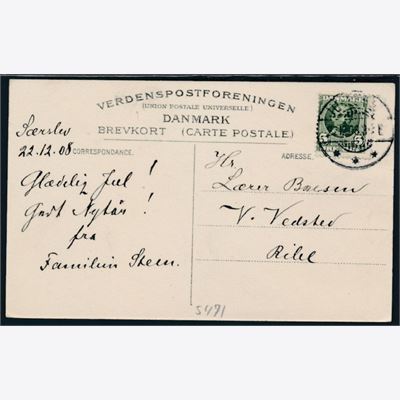 VERDENSPOSTFORENINGEN
(UNION POSTALE UNIVERSELLE)
DANMARK
BREVKORT (CARTE POSTALE)
Særslev
22.12.08
CORRESPONDANCE.
Glædelig Jul!
Godt Nytår!
fra
Familien Steen.
ADRESSE.
Hr.
Lærer Boesen
V. Vedsted
Ribe
5
5491